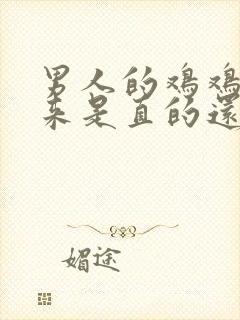 男人的鸡鸡
来是直的還
媚途